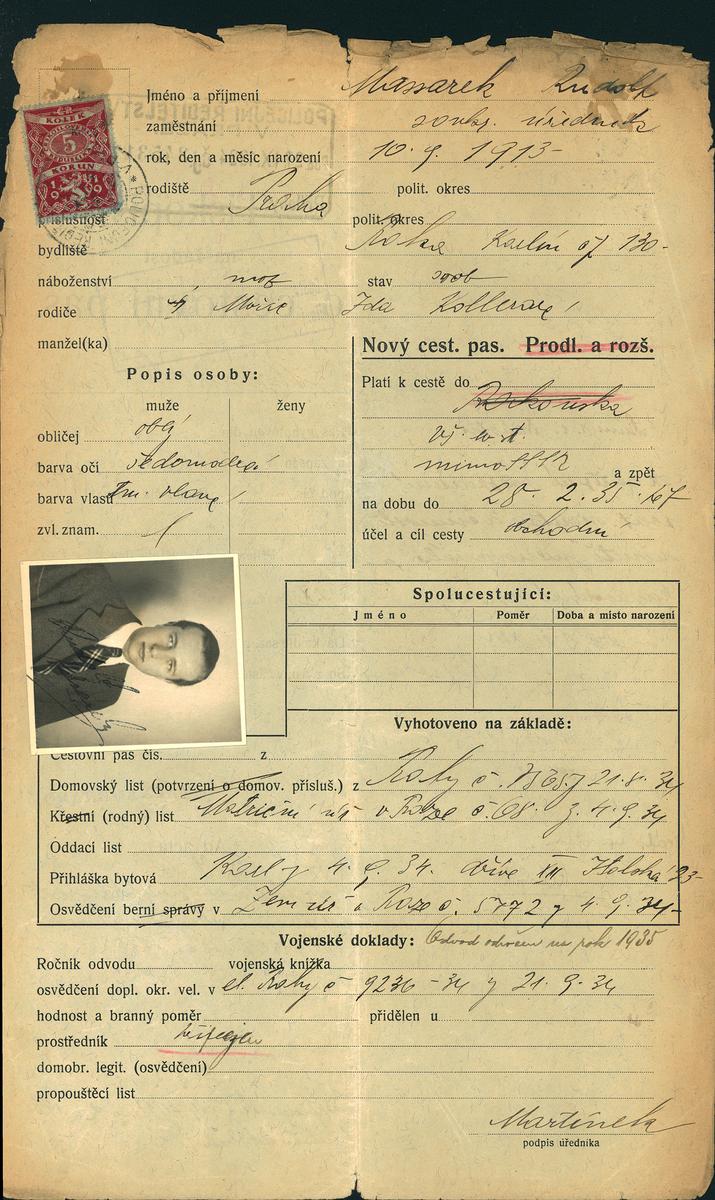 Jméno a příjmení Massarek Rudolf
zaměstnání soukr. úředník
rok, den a měsíc narození 10. 9. 1913
rodiště Praha polit. okres
příslušnost polit. okres
bydliště Praha Karlín čp 130
náboženství moj stav svob
rodiče Moric Ida Kollerová
manžel(ka)
ČR
KOLEK
5
KORUN
Popis osoby:
muže ženy
obličej obly
barva očí šedomodré
barva vlasů tm. vlasy
zvl. znam.
Nový cest. pas. Prodl. a rozš.
Platí k cestě do
mimo SSSR a zpět
na dobu do 28. 2. 35
účel a cíl cesty obchodní
Spolucestující:
Jméno Poměr Doba a místo narození
Vyhotoveno na základě:
Cestovní pas čís. z
Domovský list (potvrzení o domov. přísluš.) z Prahy č. 21. 8. 34
Křestní (rodný) list Matriční úř. v Praze č. 68 z 4. 9. 34
Oddací list
Přihláška bytová Karl z 4. 9. 34. dříve XII
Osvědčení berní správy v Praze č. 5772 z 4. 9. 34
Vojenské doklady: Odvod odročen na rok 1935
Ročník odvodu vojenská knížka
osvědčení dopl. okr. vel. v Prahy č 9236-34 z 21. 9. 34
hodnost a branný poměr přidělen u
prostředník
domobr. legit. (osvědčení)
propouštěcí list
Martínek
podpis úředníka